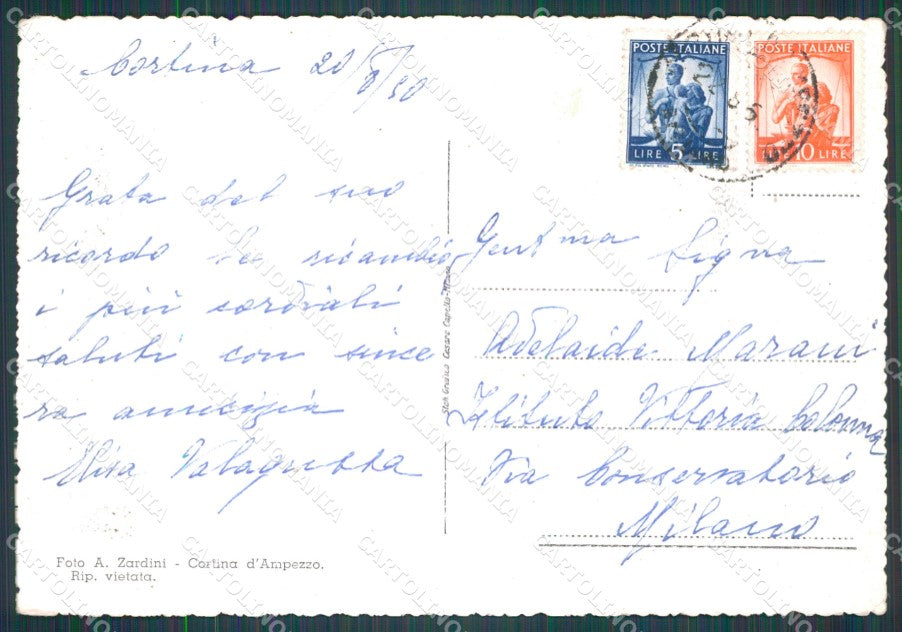 Cortina 20/8/50
POSTE ITALIANE
LIRE 5 LIRE
POSTE ITALIANE
10 LIRE
Grata del suo
ricordo Le ricambio
i più cordiali
saluti con since
ra amicizia
Elisa Valagussa
Gent ma Sigra
Adelaide Marani
Istituto Vittoria Colonna
Via Conservatorio
Milano
Foto A. Zardini - Cortina d'Ampezzo.
Rip. vietata.
CARTOLINOMANIA